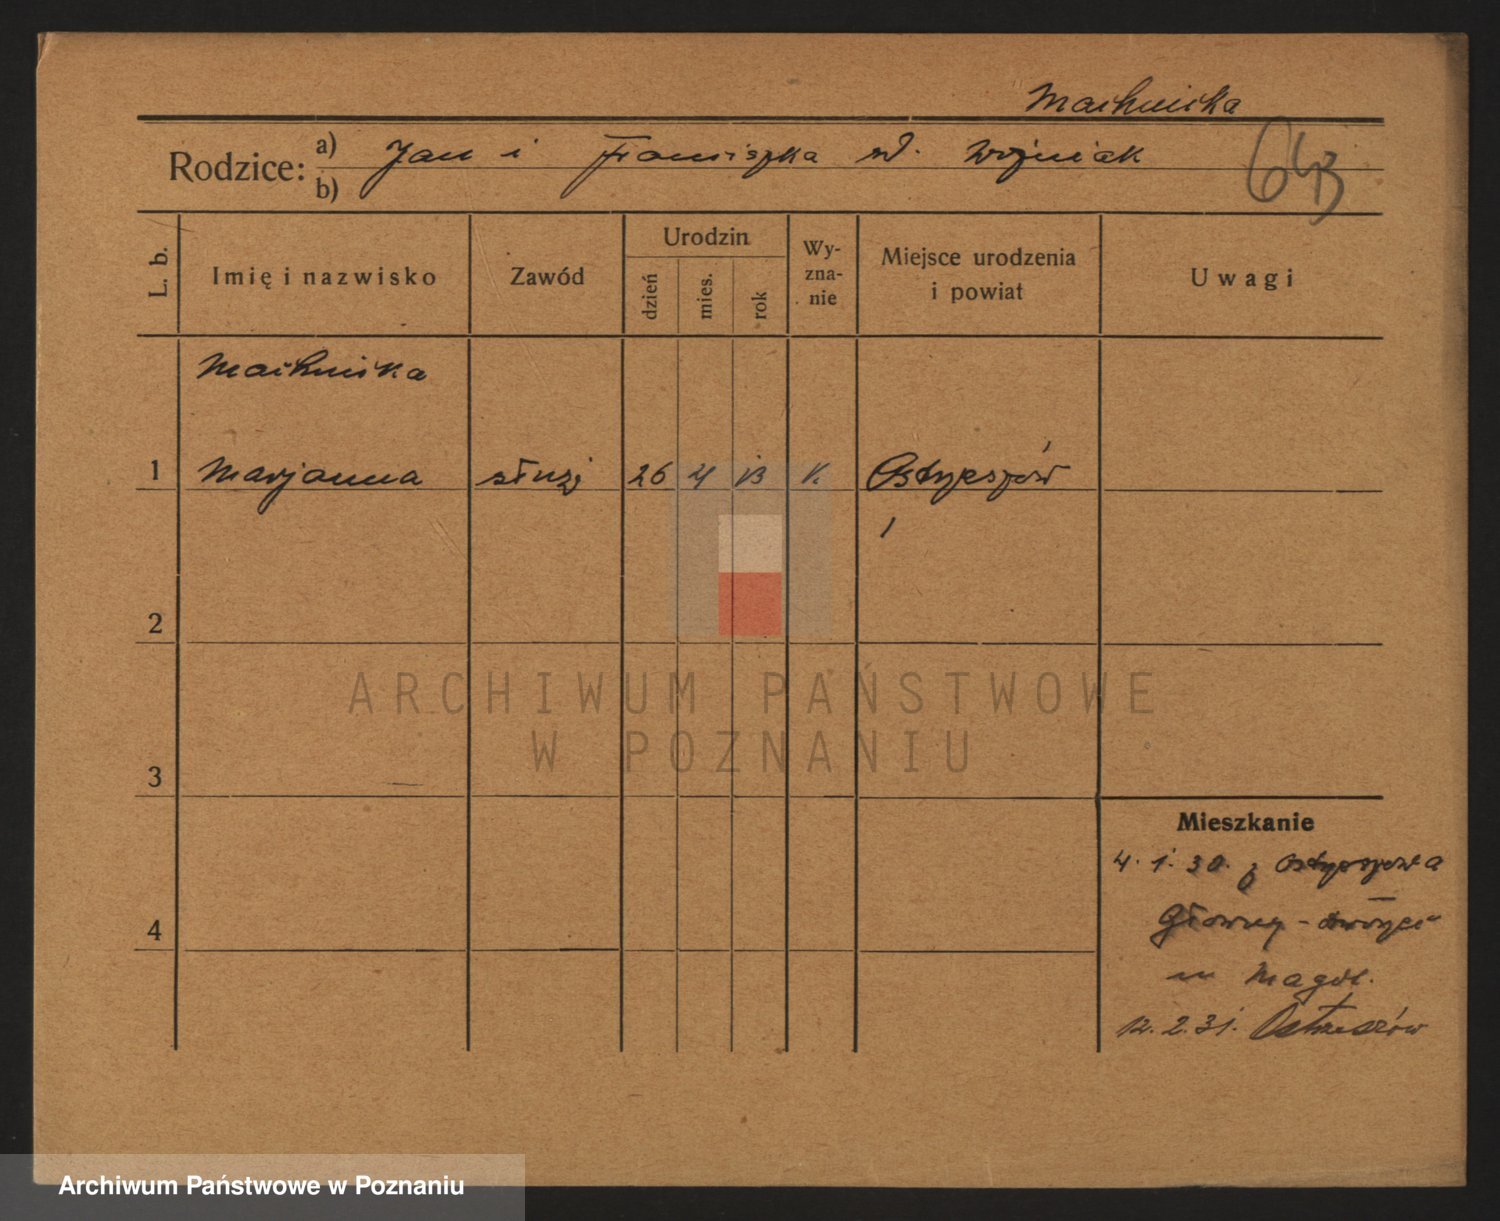 Machnicka
Rodzice: a) Jan i Franciszka wd. Woźniak
b)
643
L. b.
Imię i nazwisko
Zawód
Urodzin
dzień
mies.
rok
Wy-
zna-
nie
Miejsce urodzenia
i powiat
Uwagi
Machnicka
1 Marjanna 26 4 13 k. Ostrzeszów
2
ARCHIWUM PAŃSTWOWE
W POZNANIU
3
Mieszkanie
4. 1. 30. z Ostrzeszowa
4
m Magdl.
12. 2. 31. Ostrzeszów
Archiwum Państwowe w Poznaniu